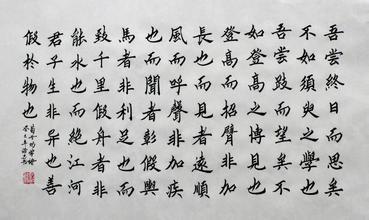 吾嘗終日而思矣
不如須臾之學也
吾嘗跂而望矣不
如登高之博見也
登高而招臂非加
長也而見者遠順
風而呼聲非加疾
也而聞者彰假輿
馬者非利足也而
致千里假舟者非
能水也而絕江河
君子生非異也善
假於物也
荀子勸學